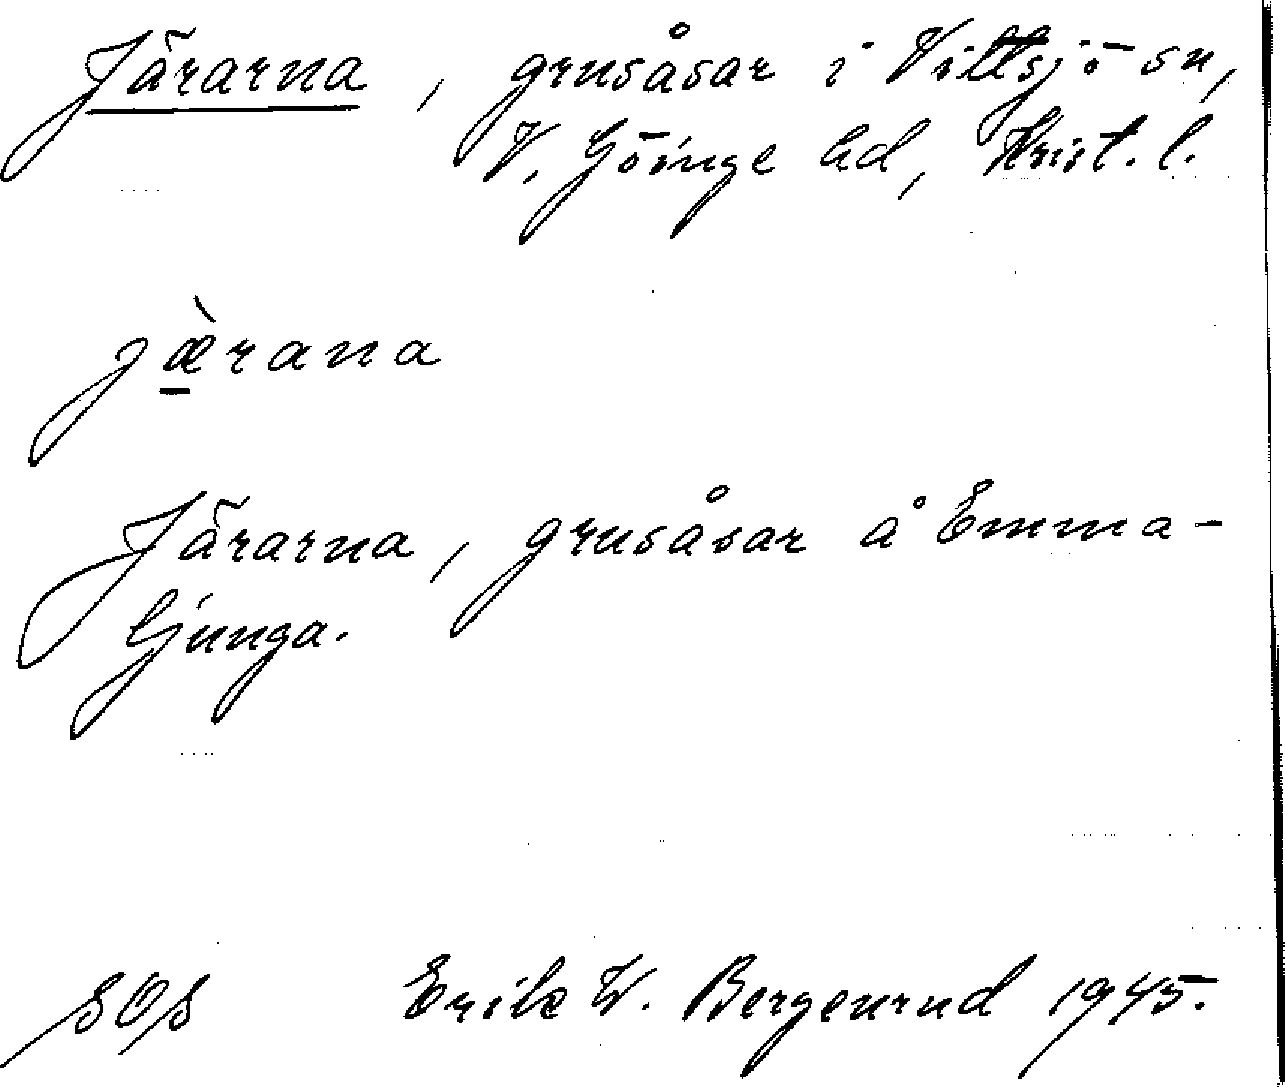 Järarna, grusåsar i Vittsjö sn,
V. Göinge hd, Krist. l.
jæ̱̀rana
Järarna, grusåsar å Emma-
ljunga.
SOS Erik W. Bergenrud 1945.